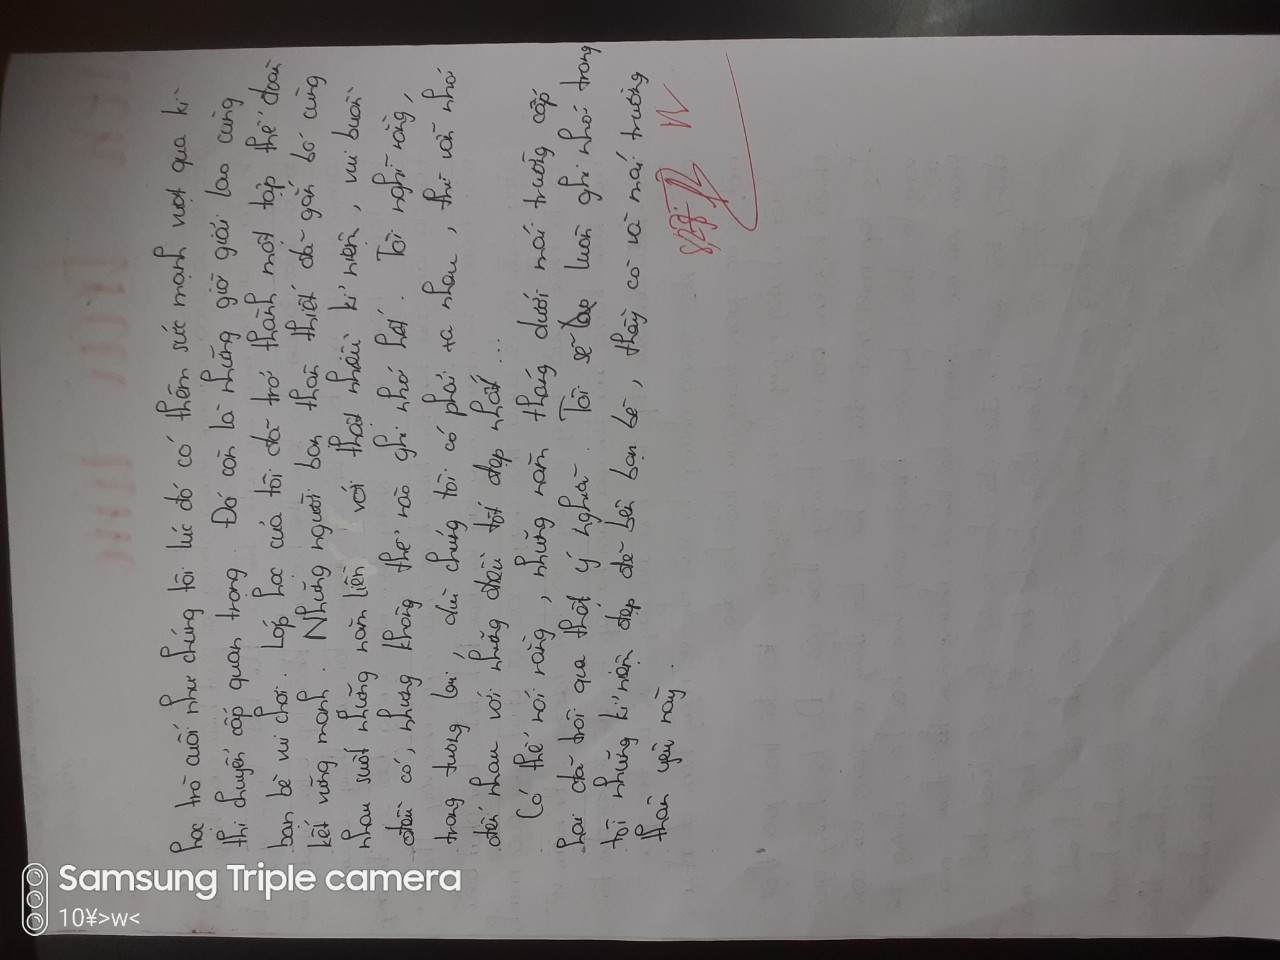 học trò cuối như chúng tôi lúc đó có thêm sức mạnh vượt qua kì
thi chuyển cấp quan trọng. Đó còn là những giờ giải lao cùng
bạn bè vui chơi. Lớp học của tôi đã trở thành một tập thể đoàn
kết vững mạnh. Những người bạn thân thiết đã gắn bó cùng
nhau suốt những năm liền với thật nhiều kỉ niệm, vui buồn
đều có, nhưng không thể nào ghi nhớ hết. Tôi nghĩ rằng,
trong tương lai, dù chúng tôi có phải xa nhau, thì vẫn nhớ
đến nhau với những điều tốt đẹp nhất...
Có thể nói rằng, những năm tháng dưới mái trường cấp
hai đã trôi qua thật ý nghĩa. Tôi sẽ luôn ghi nhớ trong
tôi những kỉ niệm đẹp đẽ bên bạn bè, thầy cô và mái trường
thân yêu này.
Samsung Triple camera
10¥>w<